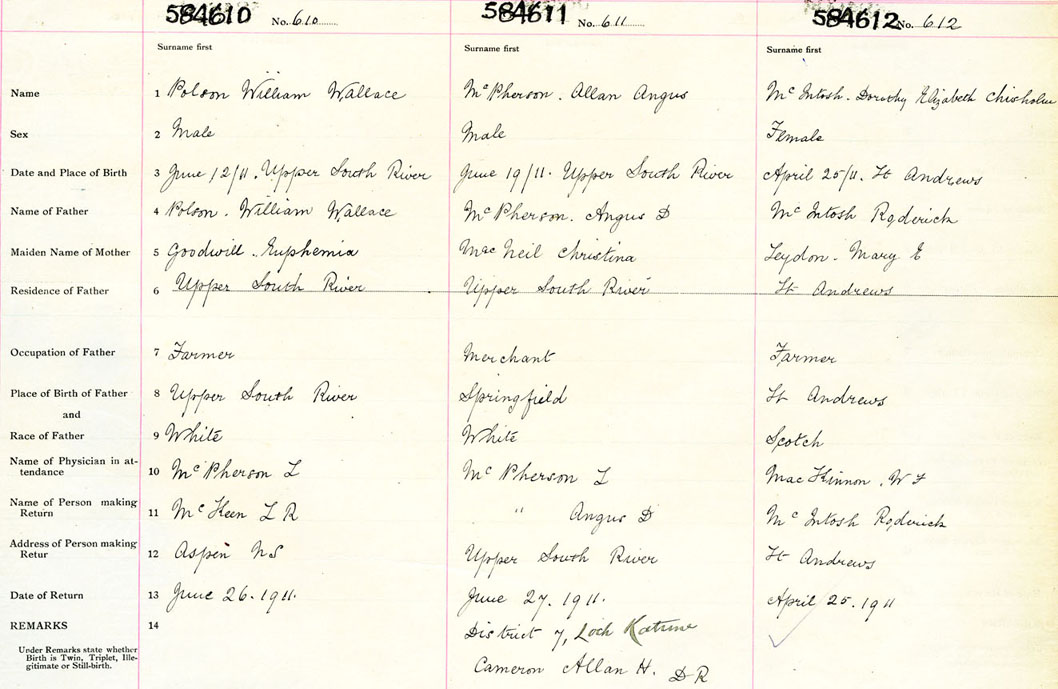 584610 No. 610 584611 No. 611 584612 No. 612
Surname first Surname first Surname first
Name 1 Polson William Wallace McPherson. Allan Angus McIntosh. Dorothy Elizabeth Chisholm
Sex 2 Male Male Female
Date and Place of Birth 3 June 12/11. Upper South River June 19/11. Upper South River April 25/11. St Andrews
Name of Father 4 Polson. William Wallace McPherson. Angus D McIntosh Roderick
Maiden Name of Mother 5 Goodwill. Euphemia MacNeil Christina Leydon. Mary E
Residence of Father 6 Upper South River Upper South River St Andrews
Occupation of Father 7 Farmer Merchant Farmer
Place of Birth of Father 8 Upper South River Springfield St Andrews
and
Race of Father 9 White White Scotch
Name of Physician in at-
tendance 10 McPherson L McPherson L MacKinnon. W F
Name of Person making
Return 11 McKeen L R " Angus D McIntosh Roderick
Address of Person making
Retur 12 Aspen NS Upper South River St Andrews
Date of Return 13 June 26. 1911. June 27. 1911. April 25. 1911
REMARKS 14 District 7, Loch Katrine
Under Remarks state whether
Birth is Twin, Triplet, Ille-
gitimate or Still-birth.
Cameron Allan H. D R